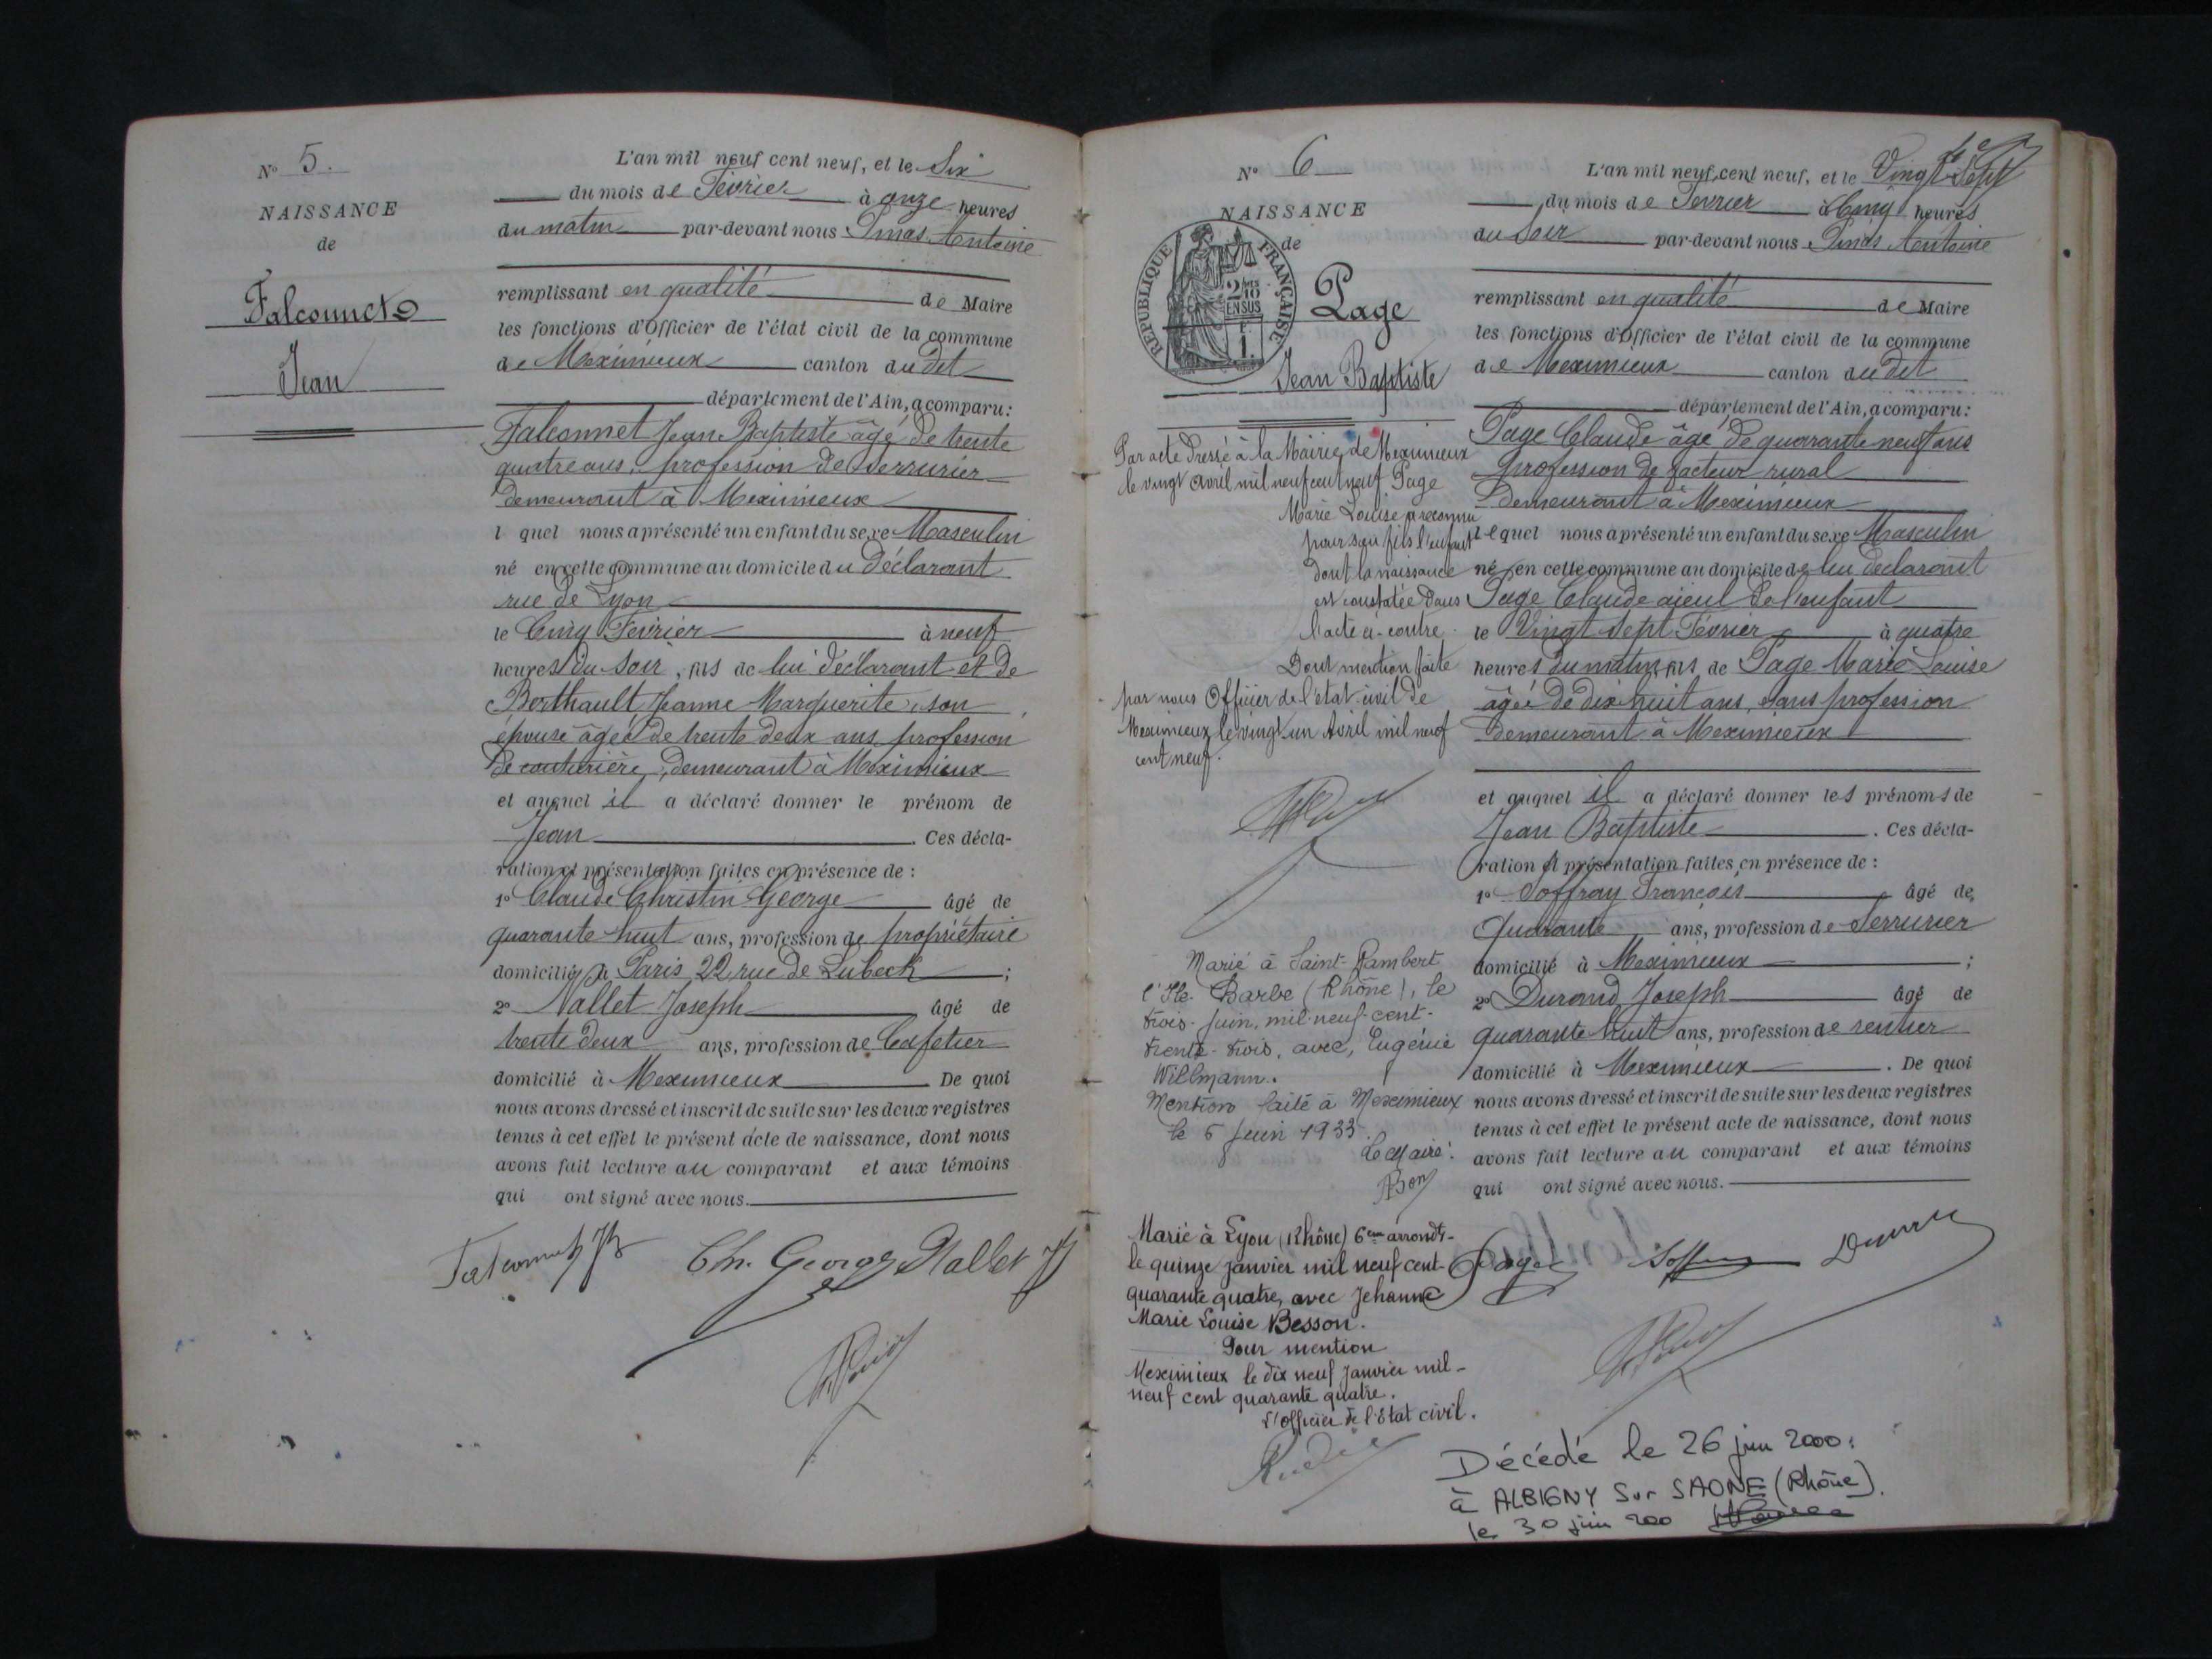 N° 5.
NAISSANCE
de
Falconnet
Jean
L'an mil neuf cent neuf, et le Six
du mois de Février à onze heures
du matin par-devant nous Pinas Antoine
remplissant en qualité de Maire
les fonctions d'Officier de l'état civil de la commune
de Meximieux canton dudit
département de l'Ain, a comparu:
Falconnet Jean Baptiste âgé de trente
quatre ans, profession de serrurier
demeurant à Meximieux
l quel nous a présenté un enfant du sexe Masculin
né en cette commune au domicile du déclarant
rue de Lyon
le Cinq Février à neuf
heures du soir, fils de lui déclarant et de
Berthault Jeanne Marguerite son
épouse âgée de trente deux ans profession
de couturière, demeurant à Meximieux
et auquel il a déclaré donner le prénom de
Jean . Ces décla-
ration et présentation faites en présence de :
1° Claude Christin George âgé de
quarante huit ans, profession de propriétaire
domicilié à Paris 22 rue de Lubeck ;
2° Nallet Joseph âgé de
trente deux ans, profession de Cafetier
domicilié à Meximieux De quoi
nous avons dressé et inscrit de suite sur les deux registres
tenus à cet effet le présent acte de naissance, dont nous
avons fait lecture au comparant et aux témoins
qui ont signé avec nous.
Falconnet JB Ch. George Nallet J
N° 6
NAISSANCE
de
REPUBLIQUE FRANÇAISE
2/10 EN SUS
Page
Jean Baptiste
Par acte dressé à la Mairie de Meximieux
le vingt avril mil neuf cent neuf Page
Marie Louise a reconnu
pour son fils l'enfant
dont la naissance
est constatée dans
l'acte ci-contre.
Dont mention faite
par nous Officier de l'état civil de
Meximieux le vingt un Avril mil neuf
cent neuf.
Marié à Saint-Rambert
l'Ile-Barbe (Rhône), le
trois-juin, mil-neuf-cent-
trente-trois, avec, Eugénie
Willmann.
Mention faite à Meximieux
le 5 juin 1933.
Le Maire:
Marié à Lyon (Rhône) 6ème arrondt-
le quinze janvier mil neuf cent-
quarante quatre, avec Jehanne
Marie Louise Besson.
Pour mention
Meximieux le dix neuf janvier mil-
neuf cent quarante quatre.
L'officier de l'État civil.
L'an mil neuf cent neuf, et le Vingt Sept
du mois de Février à Cinq heures
du Soir par-devant nous Pinas Antoine
remplissant en qualité de Maire
les fonctions d'Officier de l'état civil de la commune
de Meximieux canton dudit
département de l'Ain, a comparu:
Page Claude âgé de quarante neuf ans
profession de facteur rural
demeurant à Meximieux
lequel nous a présenté un enfant du sexe Masculin
né en cette commune au domicile de lui déclarant
Page Claude aïeul de l'enfant
le Vingt Sept Février à quatre
heures du matin fils de Page Marie Louise
âgée de dix huit ans, sans profession
demeurant à Meximieux
et auquel il a déclaré donner les prénoms de
Jean Baptiste . Ces décla-
ration et présentation faites en présence de :
1° Soffray François âgé de
Quarante ans, profession de Serrurier
domicilié à Meximieux ;
2° Durand Joseph âgé de
quarante huit ans, profession de rentier
domicilié à Meximieux . De quoi
nous avons dressé et inscrit de suite sur les deux registres
tenus à cet effet le présent acte de naissance, dont nous
avons fait lecture au comparant et aux témoins
qui ont signé avec nous.
Page
Décédé le 26 juin 2000:
à ALBIGNY Sur SAONE (Rhône).
le 30 juin 200